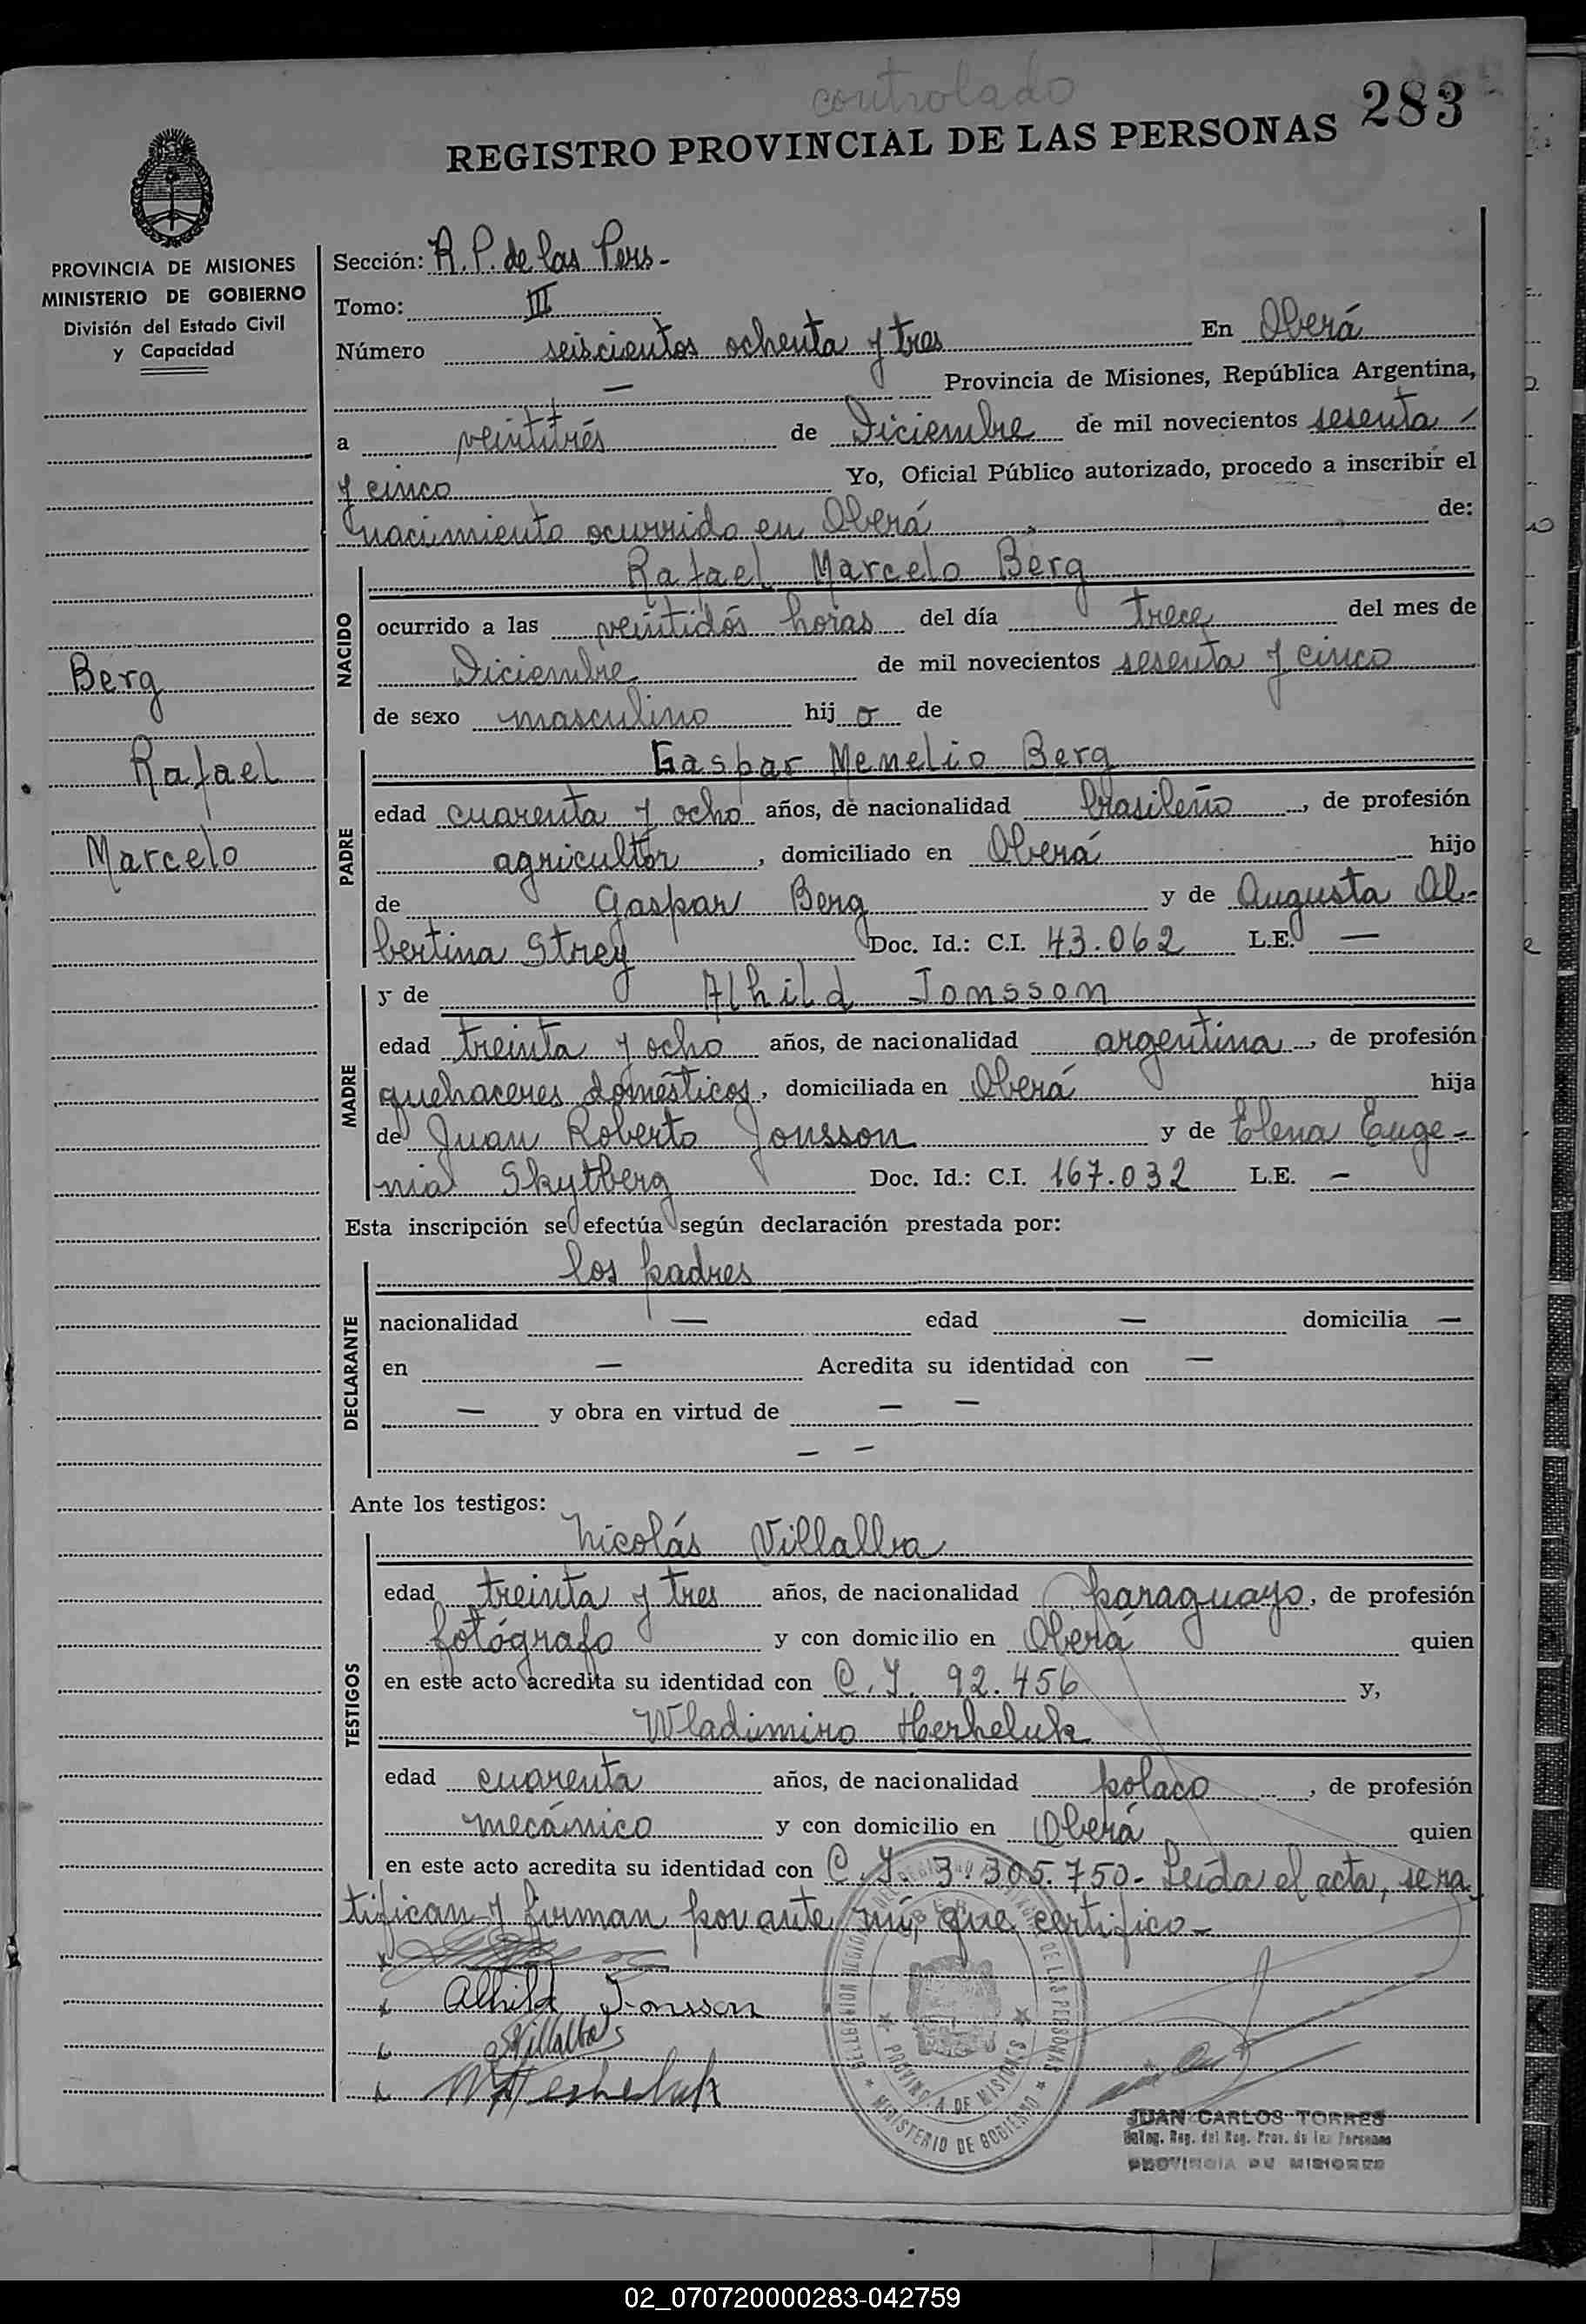 controlado
283
REGISTRO PROVINCIAL DE LAS PERSONAS
PROVINCIA DE MISIONES
MINISTERIO DE GOBIERNO
División del Estado Civil
y Capacidad
Berg
Rafael
Marcelo
Sección: R. P. de las Pers.-
Tomo: III
Número seiscientos ochenta y tres En Oberá
— Provincia de Misiones, República Argentina,
a veintitrés de Diciembre de mil novecientos sesenta
y cinco Yo, Oficial Público autorizado, procedo a inscribir el
nacimiento ocurrido en Oberá de:
NACIDO
Rafael Marcelo Berg
ocurrido a las veintidós horas del día trece del mes de
Diciembre de mil novecientos sesenta y cinco
de sexo masculino hijo de
PADRE
Gaspar Menelio Berg
edad cuarenta y ocho años, de nacionalidad brasileño, de profesión
agricultor, domiciliado en Oberá hijo
de Gaspar Berg y de Augusta Al-
bertina Strey Doc. Id.: C.I. 43.062 L.E. —
MADRE
y de Alhild Jonsson
edad treinta y ocho años, de nacionalidad argentina, de profesión
quehaceres domésticos, domiciliada en Oberá hija
de Juan Roberto Jonsson y de Elena Euge-
nia Skytberg Doc. Id.: C.I. 167.032 L.E. —
Esta inscripción se efectúa según declaración prestada por:
DECLARANTE
los padres
nacionalidad — edad — domicilia —
en — Acredita su identidad con —
— y obra en virtud de — —
— —
Ante los testigos:
TESTIGOS
Nicolás Villalba
edad treinta y tres años, de nacionalidad paraguayo, de profesión
fotógrafo y con domicilio en Oberá quien
en este acto acredita su identidad con C.I. 92.456 y,
Wladimiro Herheluk
edad cuarenta años, de nacionalidad polaco, de profesión
mecánico y con domicilio en Oberá quien
en este acto acredita su identidad con C.I 3.305.750.- Leída el acta, se ra
tifican y firman por ante mí, que certifico.-
Alhild Jonsson
Villalba
W Herheluk
PROVINCIA DE MISIONES
MINISTERIO DE GOBIERNO
JUAN CARLOS TORRES
Deleg. Reg. del Reg. Prov. de las Personas
PROVINCIA DE MISIONES
02_070720000283-042759